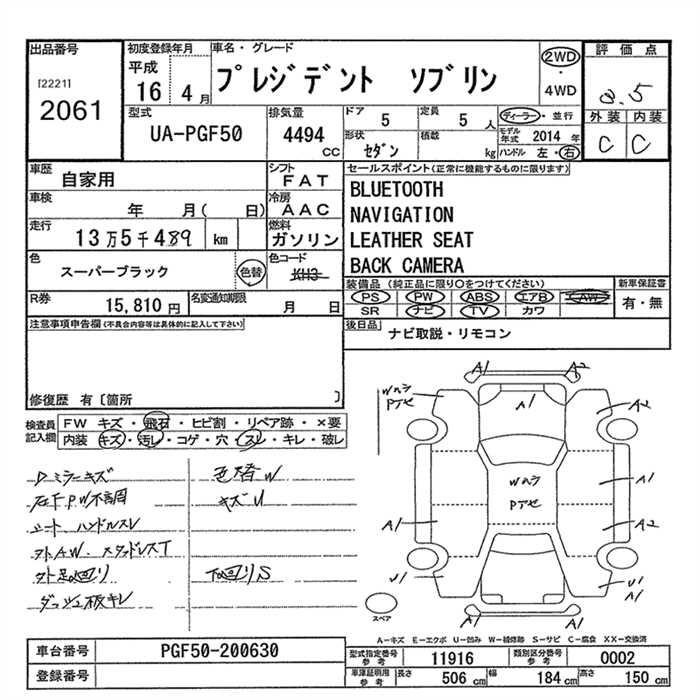 出品番号
[2221]
2061
初度登録年月
平成
16 4月
車名・グレード
プレジデント ソブリン
2WD
・
4WD
評価点
3.5
外装 内装
C C
型式
UA-PGF50
排気量
4494
CC
ドア
5
定員
5人
形状
セダン
積載
kg
ディーラー・並行
モデル年式 2014年
ハンドル 左・右
車歴
自家用
シフト
FAT
車検
年 月( 日)
冷房
AAC
走行
13万5千489 km
燃料
ガソリン
色
スーパーブラック
色替
色コード
KH3
R券
15,810円
名変通知期限
月 日
セールスポイント(正常に機能するものに限ります)
BLUETOOTH
NAVIGATION
LEATHER SEAT
BACK CAMERA
装備品(純正品に限り○をつけてください)
PS PW ABS エアB AW
SR ナビ TV カワ
新車保証書
有・無
後日品
ナビ取説・リモコン
注意事項申告欄(不具合内容等は具体的に記入して下さい)
修復歴 有〔箇所 〕
検査員記入欄
FW キズ・飛石・ヒビ割・リペア跡・×要
内装 キズ・汚し・コゲ・穴・スレ・キレ・破レ
Dミラーキズ
色替W
右F.P.W不調
キズU
シート、ハンドルスレ
外AW、スタッドレスT
外足回り
下回りS
ダッシュ板キレ
A1
A2
Wハラ
Pアセ
A1
A2
Wハラ
Pアセ
A1
A1
A2
U1
U1
A1
A1
スペア
A-キズ E-エクボ U-凹み W-補修跡 S-サビ C-腐食 XX-交換済
車台番号
PGF50-200630
登録番号
型式指定番号
参考
11916
類別区分番号
参考
0002
車庫証明用
参考
長さ
506 cm
幅
184 cm
高さ
150 cm